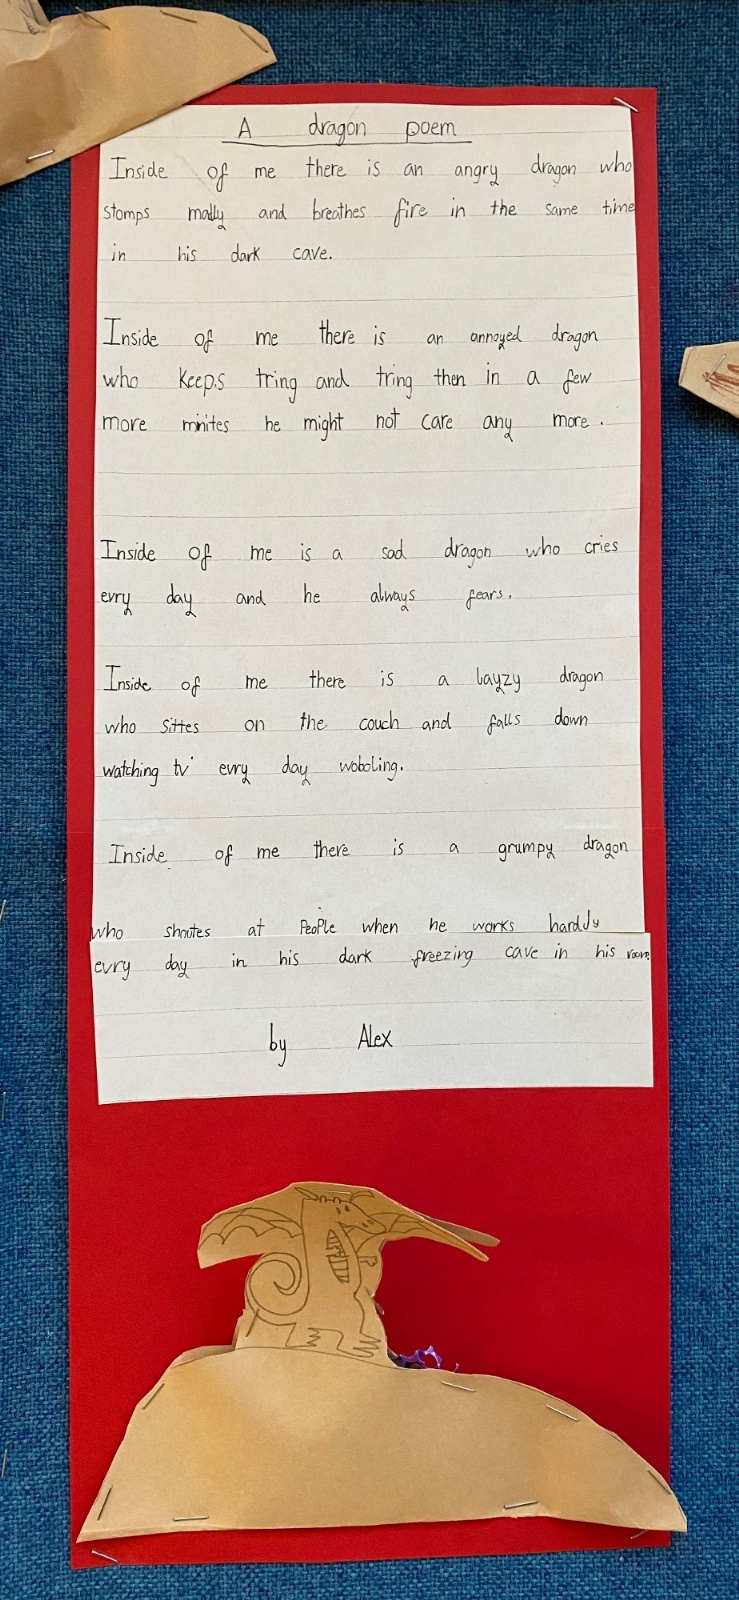 A dragon poem
Inside of me there is an angry dragon who
stomps mally and breathes fire in the same time
in his dark cave.
Inside of me there is an annoyed dragon
who keeps tring and tring then in a few
more minites he might not care any more.
Inside of me is a sad dragon who cries
evry day and he always fears.
Inside of me there is a layzy dragon
who sittes on the couch and falls down
watching tv evry day wobbling.
Inside of me there is a grumpy dragon
who shoutes at People when he works harddy
evry day in his dark freezing cave in his room
by Alex